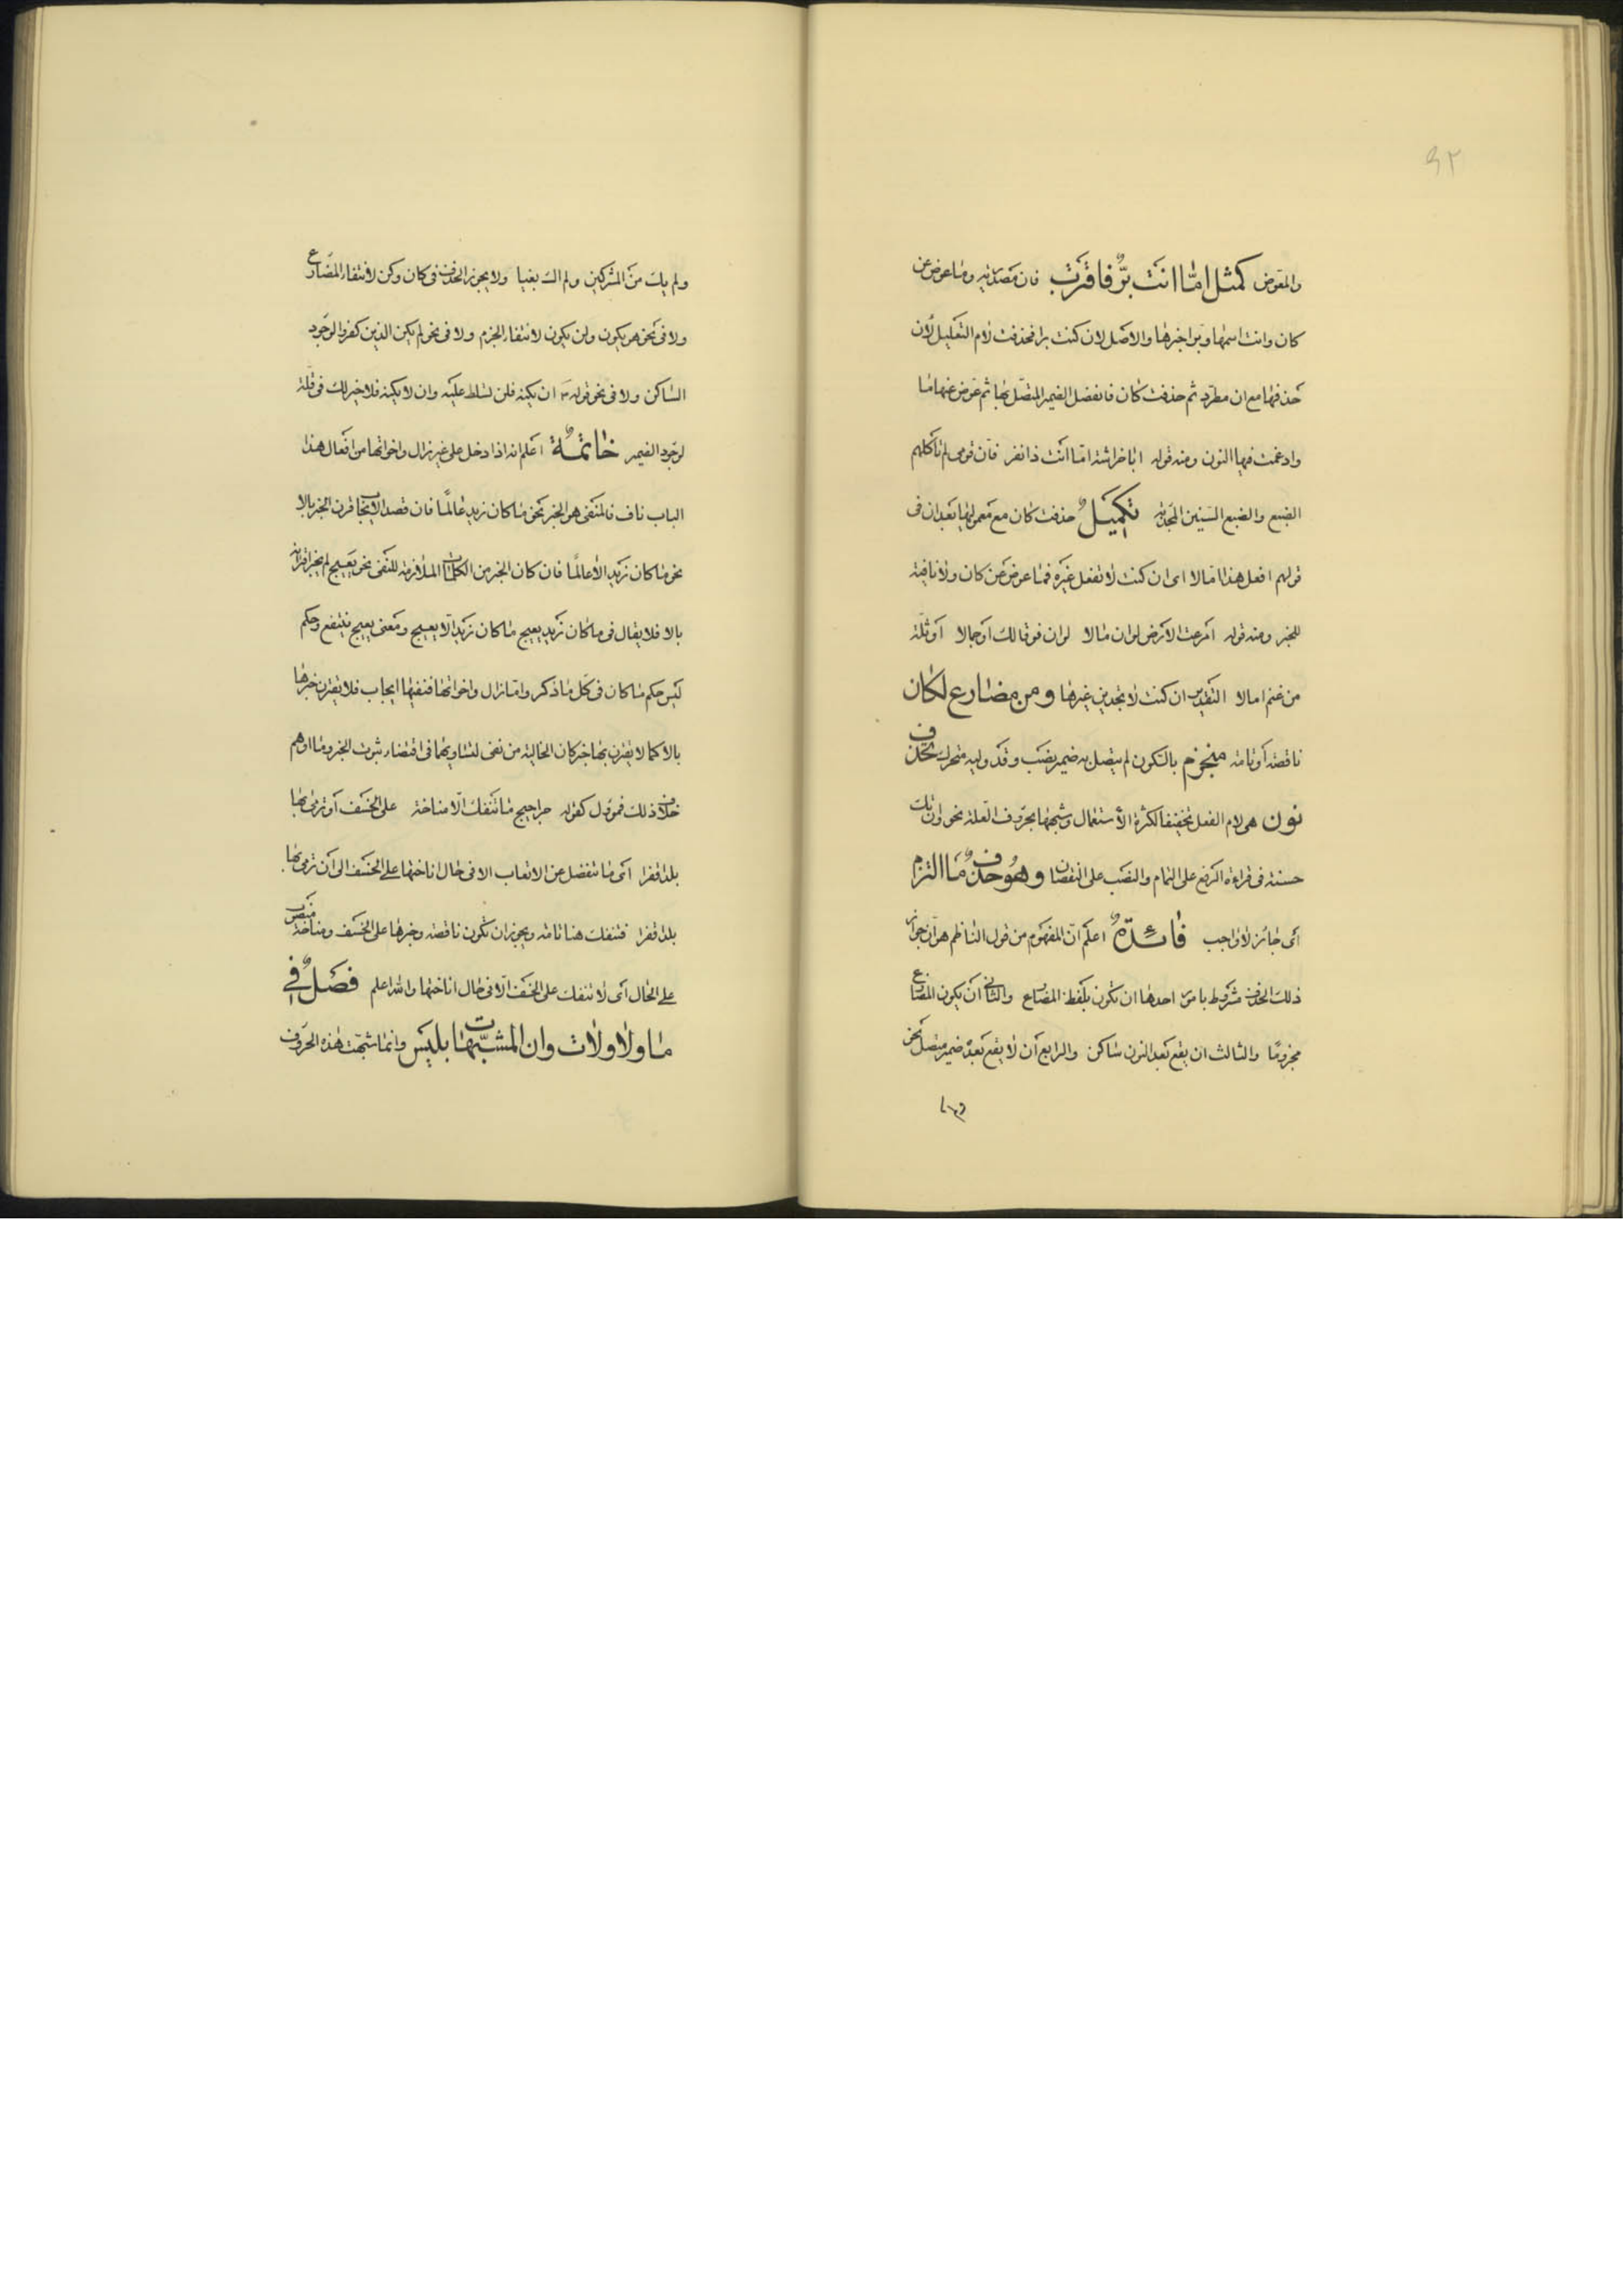 ٩٢
والمعوض كمثل امّا انت برٌّ فاقترب فان مصدرية وما عوض عن
كان وانت اسمها وبرا خبرها والاصل لان كنت برا فحذفت لام التعليل لان
حذفها مع ان مطرد ثم حذفت كان فانفصل الضمير المتصل بها ثم عوض عنها ما
وادغمت فيها النون ومنه قوله ابا خراشة اما انت ذا نفر فان قومى لم تأكلهم
الضبع والضبع السنين المجدبة تكميلٌ حذفت كان مع معموليها بعد ان فى
قولهم افعل هذا اما لا اى ان كنت لا تفعل غيره فما عوض عن كان ولا نافية
للخبر ومنه قوله امرعت الارض لو ان مالا لو ان نوقا لك او جمالا او ثلة
من غنم اما لا التقدير ان كنت لا تجدين غيرها ومن مضارع لكان
ناقصة او تامة منجزم بالسكون لم يتصل به ضمير نصب وقد وليه متحرك تحذف
نون هى لام الفعل تخفيفا لكثرة الاستعمال وشبهها بحروف العلة نحو وان تك
حسنة فى قراءة الرفع على التمام والنصب على النقصان وهو حذفٌ ما التزم
اى جائز لا واجب فائدةٌ اعلم انّ المفهوم من قول الناظم هو ان جواز
ذلك الحذف مشروط بامور احدها ان تكون بلفظ المضارع والثانى ان يكون المضارع
مجزومًا والثالث ان يقع بعد النون ساكن والرابع ان لا يقع بعده ضمير متصل نحو
ولم
ولم يك من المشركين ولم اك بغيا ولا يجوز الحذف فى كان وكن لانتفاء المضارع
ولا فى نحو هو يكون ولن يكون لانتفاء الجزم ولا فى نحو لم يكن الذين كفروا لوجود
الساكن ولا فى نحو قوله ان يكنه فلن تسلط عليه وان لا يكنه فلا خير لك فى قتله
لوجود الضمير خاتمةٌ اعلم انه اذا دخل على غير زال واخواتها من افعال هذا
الباب ناف فالمنفى هو الخبر نحو ما كان زيد عالمًا فان قصد الايجاب قرن الخبر بالا
نحو ما كان زيد الا عالمًا فان كان الخبر من الكلمات الملازمة للنفى نحو يعيج لم يجز اقترانه
بالا فلا يقال فى ما كان زيد يعيج ما كان زيد الا يعيج ومعنى يعيج ينتفع وحكم
ليس حكم ما كان فى كل ما ذكر واما زال واخواتها فنفيها ايجاب فلا يقترن خبرها
بالا كما لا يقترن بها خبر كان الخالية من نفى لتساويهما فى اقتضاء ثبوت الخبر وما اوهم
خلاف ذلك فمؤول كقوله حراجيج ما تنفك الا مناخة على الخسف او نرمى بها
بلدا قفرا اى ما تنفصل عن الاتعاب الا فى حال اناختها على الخسف الى ان نرمى بها
بلدا قفرا فتنفك هنا تامة ويجوز ان تكون ناقصة وخبرها على الخسف ومناخة منصوب
على الحال اى لا تنفك على الخسف الا فى حال اناختها والله اعلم فصلٌ فى
ما ولا ولات وان المشبهات بليس وانما شبهت هذه الحروف